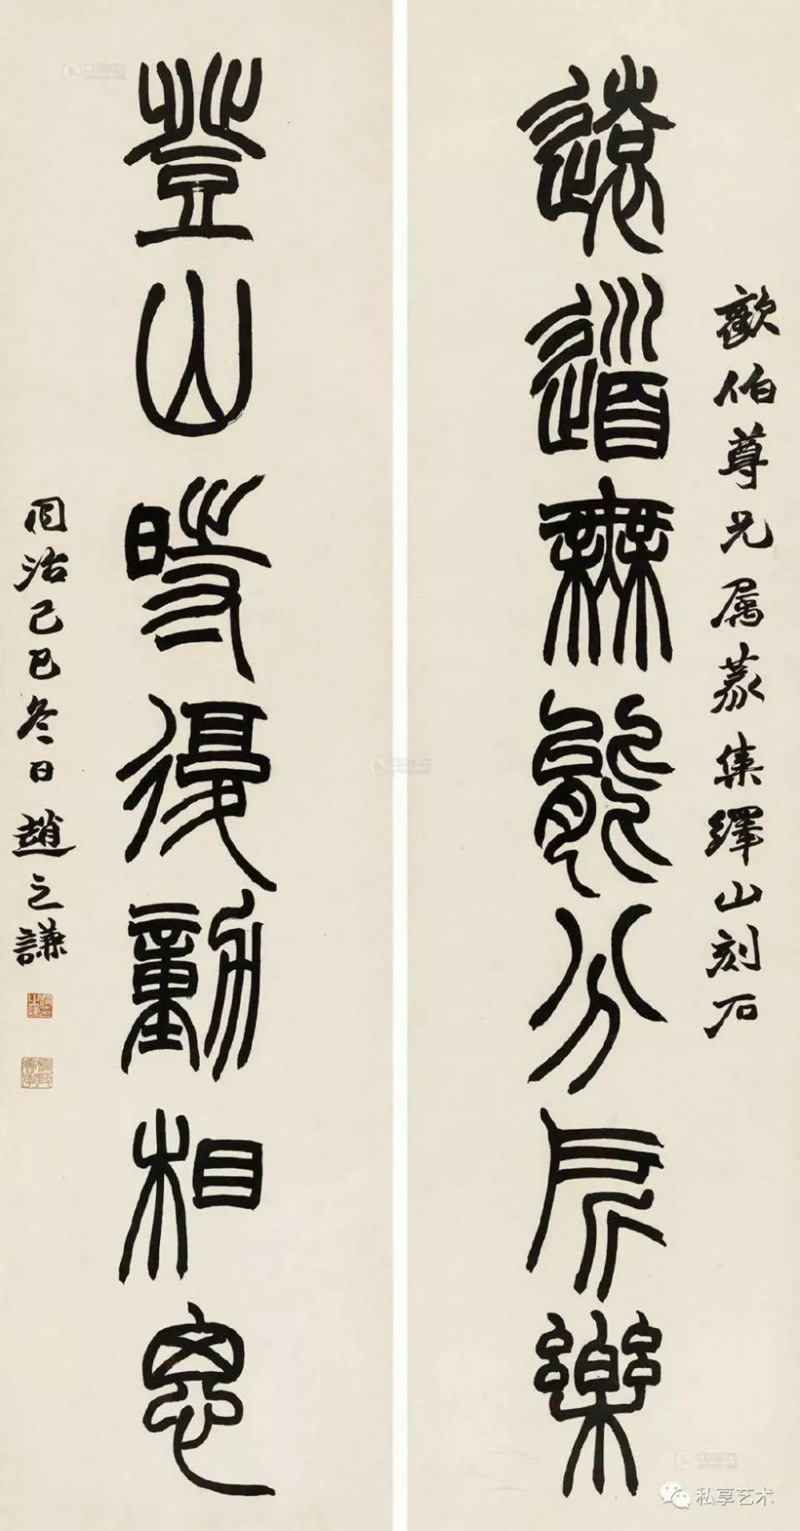 伯尊兄属篆集繹山刻石
遠道無能分所樂
登山時復動相思
同治己巳冬日趙之謙
私享艺术